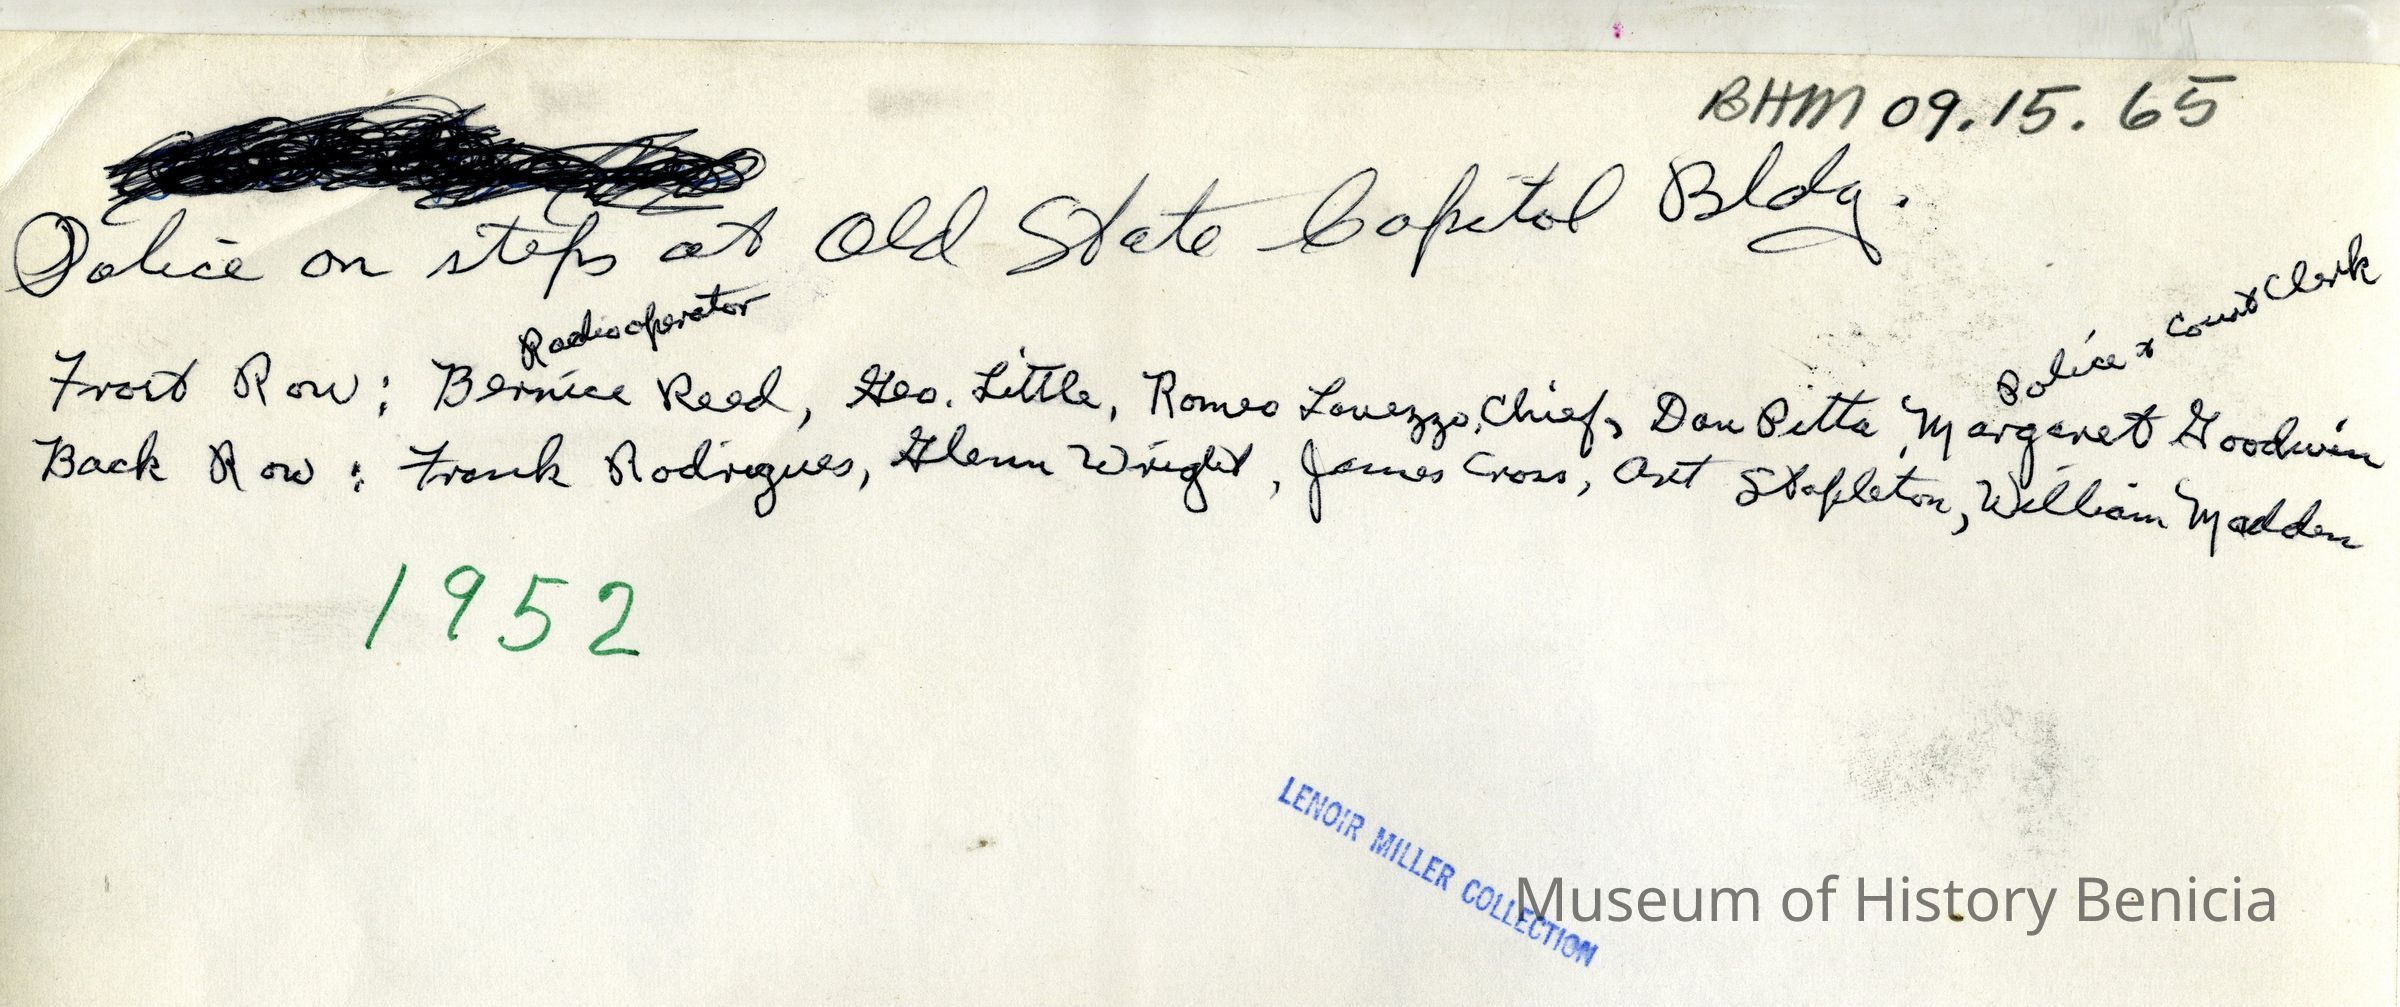 BHM 09.15.65
Police on steps at Old State Capitol Bldg.
Radio operator
Police & Court Clerk
Front Row: Bernice Reed, Geo. Little, Romeo Lovezzo, Chief, Don Pitta, Margaret Goodwin
Back Row: Frank Rodrigues, Glenn Wright, James Cross, Art Stapleton, William Madden
1952
LENOIR MILLER COLLECTION
Museum of History Benicia